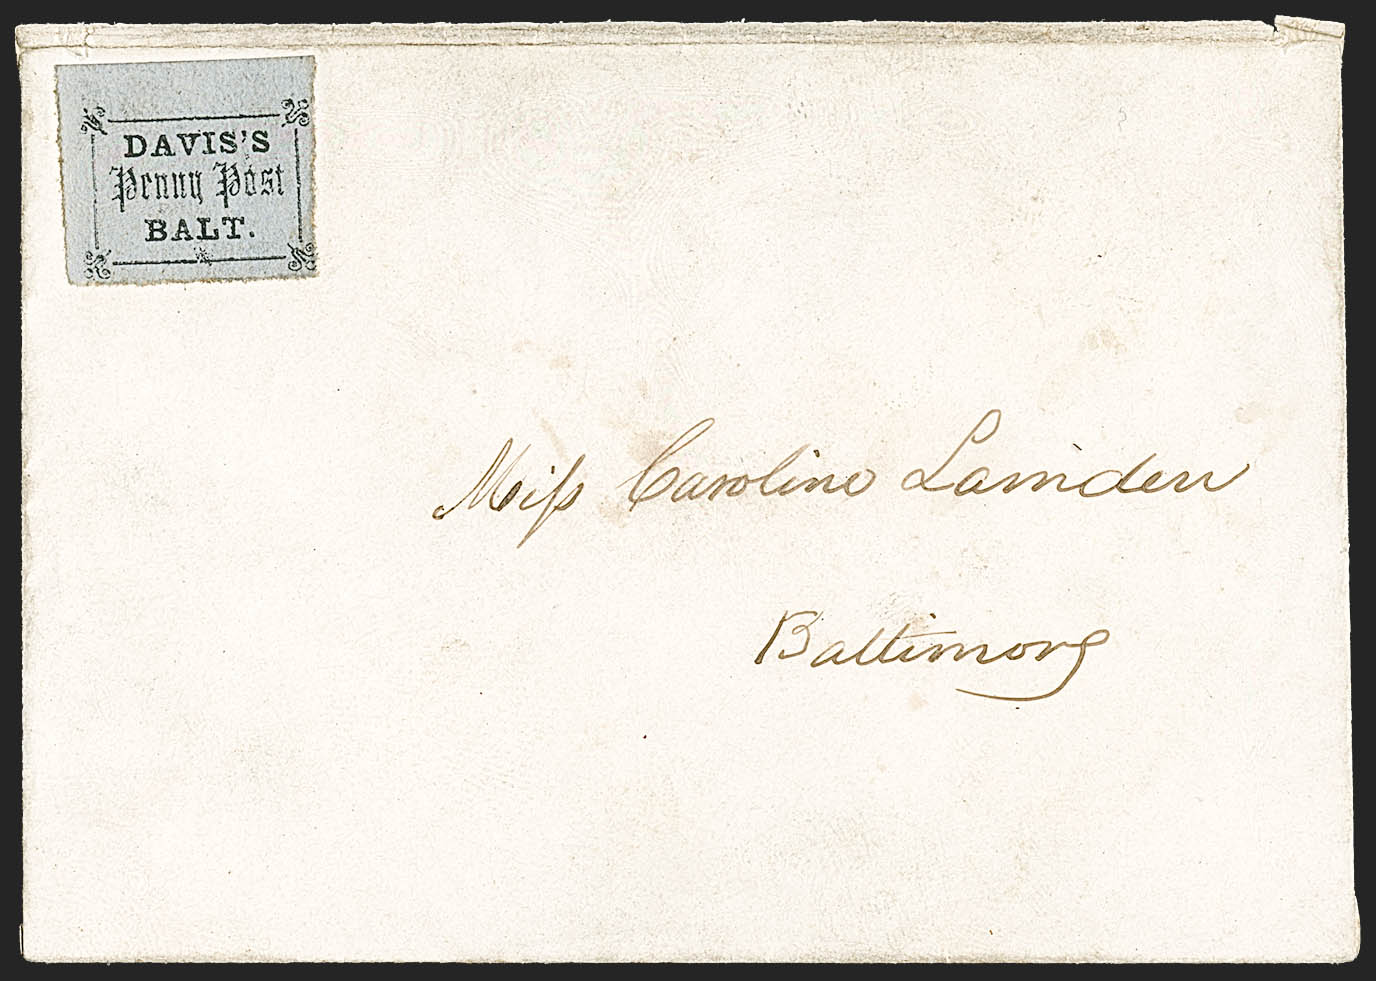 DAVIS'S
Penny Post
BALT.
Miſs Caroline Lamden
Baltimore